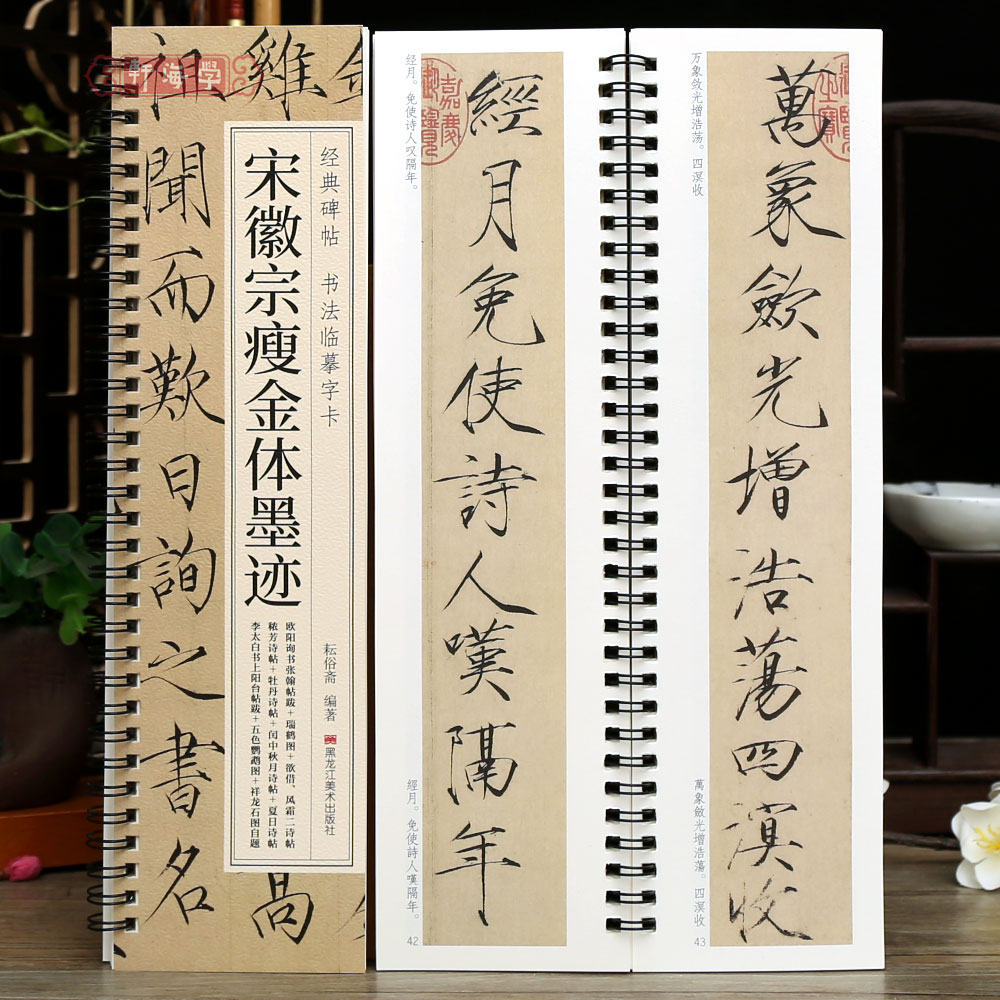 轩海学
祖
雞
聞而歎曰詢之書名
高
经典碑帖 书法临摹字卡
宋徽宗瘦金体墨迹
耘俗斋 编著
黑龙江美术出版社
欧阳询书张翰帖跋+瑞鹤图+欲借、风霜二诗帖
秾芳诗帖+牡丹诗帖+闰中秋月诗帖+夏日诗帖
李太白书上阳台帖跋+五色鹦鹉图+祥龙石图自题
经月。免使诗人叹隔年。
經月免使詩人嘆隔年
嘉慶
御覽
經月。免使詩人嘆隔年。
42
万象敛光增浩荡。四溟收
萬象斂光增浩蕩四溟收
萬象斂光增浩蕩。四溟收
43